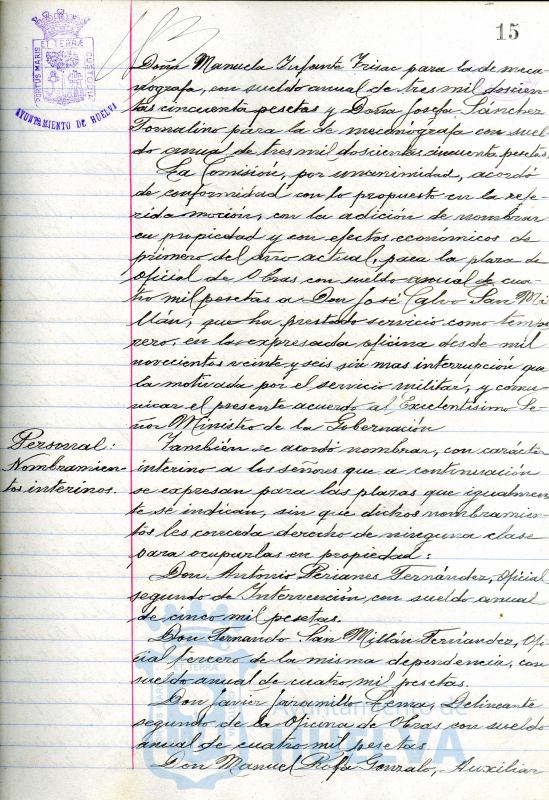 15
PORTUS MARIS ET TERRÆ CUSTODIA
AYUNTAMIENTO DE HUELVA
Doña Manuela Infante Trisac para la de meca
nógrafa, con sueldo anual de tres mil doscien
tas cincuenta pesetas y Doña Josefa Sánchez
Tomalino para la de mecanógrafa con suel
do anual de tres mil doscientas cincuenta pesetas.
La Comisión, por unanimidad, acordó
de conformidad con lo propuesto en la refe
rida moción, con la adición de nombrar
en propiedad y con efectos económicos de
primero del año actual, para la plaza de
Oficial de Obras con sueldo anual de cua
tro mil pesetas a Don José Calvo San Mi
llán, que ha prestado servicio como tempo
rero, en la expresada oficina desde mil
novecientos veinte y seis sin mas interrupción que
la motivada por el servicio militar, y comu
nicar el presente acuerdo al Excelentísimo Se
ñor Ministro de la Gobernación
Personal:
Nombramien
tos interinos.
También se acordó nombrar, con carácter
interino a los señores que a continuación
se expresan para las plazas que igualmen
te se indican, sin que dichos nombramien
tos les conceda derecho de ninguna clase
para ocuparlas en propiedad:
Don Antonio Perianes Fernández, Oficial
segundo de Intervención, con sueldo anual
de cinco mil pesetas.
Don Fernando San Millán Fernández, Ofi
cial tercero de la misma dependencia, con
sueldo anual de cuatro mil pesetas.
Don Javier Jaramillo Lemas, Delineante
segundo de la Oficina de Obras con sueldo
anual de cuatro mil pesetas
Don Manuel Gonzalo, Auxiliar
Ayuntamiento de
HUELVA